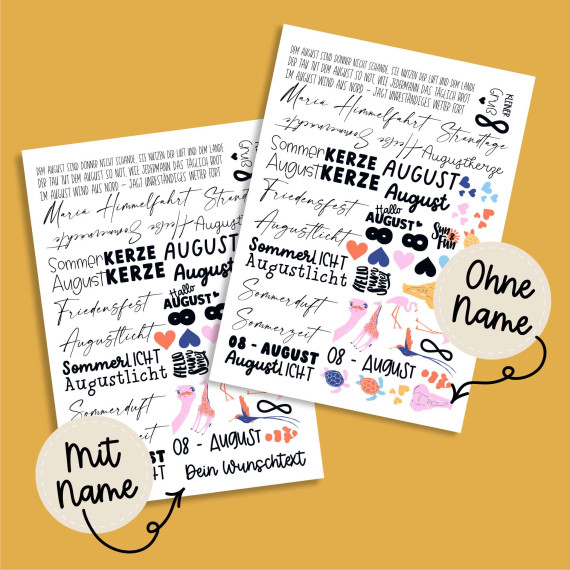 DEM AUGUST SIND DONNER NICHT SCHANDE, SIE NUTZEN DER LUFT UND DEM LANDE
DER TAU TUT DEM AUGUST SO NOT, WIE JEDERMANN DAS TÄGLICH BROT
IM AUGUST WIND AUS NORD - JAGT UNBESTÄNDIGES WETTER FORT
KLEINER
Gruß
8
Maria Himmelfahrt Strandtage
Sommernächte
Heiße
Augustkerze
SommerKERZE AUGUST
AugustKERZE August
Friedensfest
Hallo
AUGUST
8 8
SUN
FUN
Augustlicht
SommerLICHT
Augustlicht
HELLO
Summer
Sommerduft
Sommerzeit
08 - AUGUST
08 - AUGUST
AugustLICHT
8
Ohne
Name
DEM AUGUST SIND DONNER NICHT SCHANDE, SIE NUTZEN DER LUFT UND DEM LANDE
DER TAU TUT DEM AUGUST SO NOT, WIE JEDERMANN DAS TÄGLICH BROT
IM AUGUST WIND AUS NORD - JAGT UNBESTÄNDIGES WETTER FORT
Gruß
Maria Himmelfahrt
Sommernächte
Heiße
SommerKERZE AUGUST
AugustKERZE August
Friedensfest
Hallo
AUGUST
8 8
Augustlicht
SommerLICHT
Augustlicht
HELLO
Sommerduft
8
08 - AUGUST
Dein Wunschtext
Mit
Name